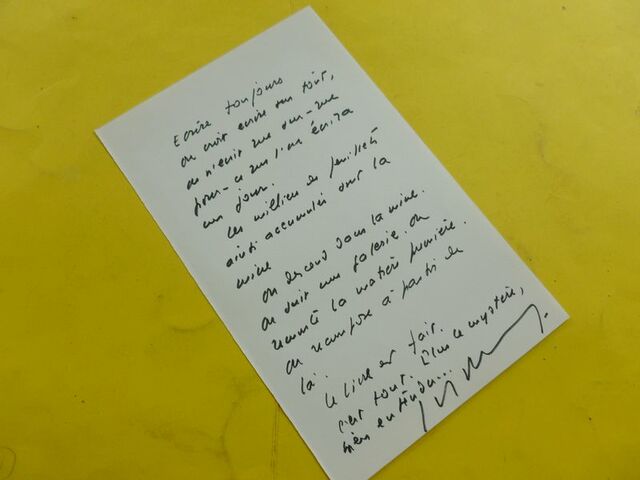 Ecrire toujours
on croit écrire sur tout,
on n'écrit que sur - que
pour - ce que l'on écrira
un jour.
Les milliers de feuillets
ainsi accumulés sont la
mine
On descend dans la mine.
On suit une galerie. On
remonte la matière première.
On recompose à partir de
là.
Le livre est fait.
C'est tout. Plus le mystère,
bien entendu...